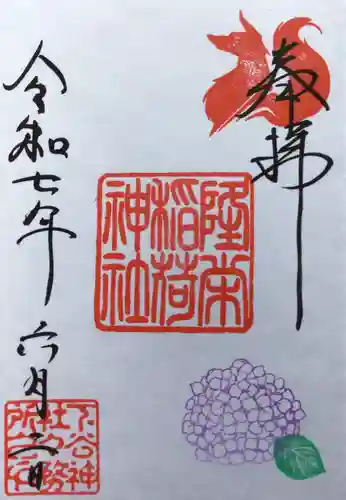 奉拝
隆栄
稲荷
神社
令和七年六月二日
下谷神
社社務
所之印